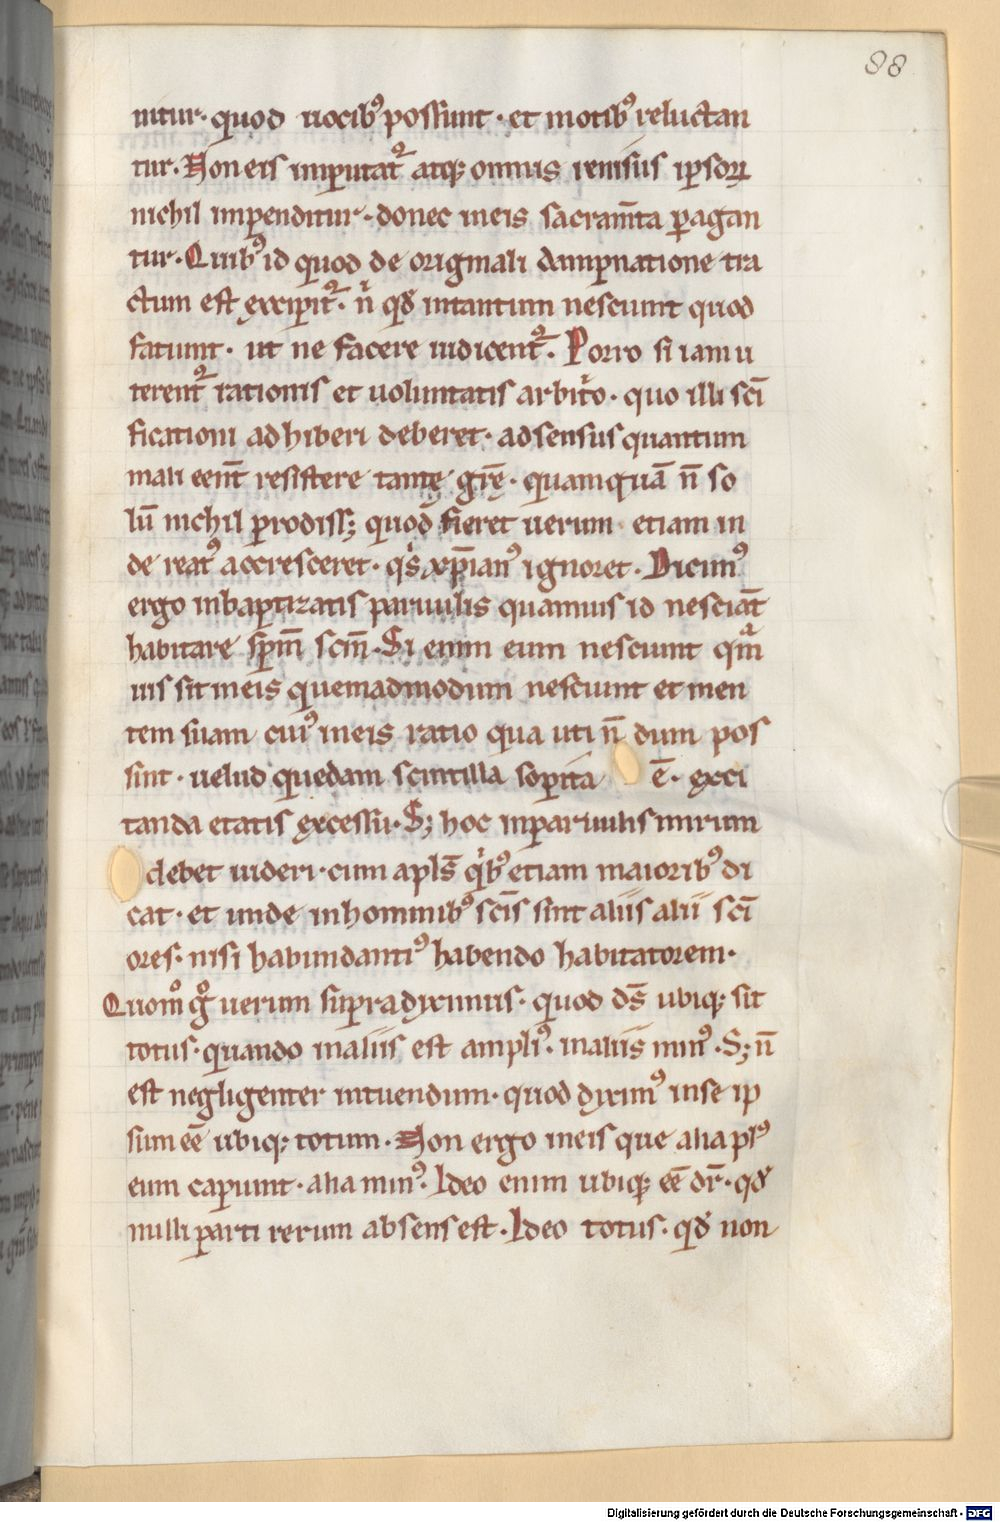 88
nitur· quod uocib᷒ possunt· et motib᷒ reluctan
tur· Non eis imputat᷒ atq; omnis renisus ipsoꝝ
nichil impenditur· donec in eis sacram̅ta ꝑagan
tur· Quib᷒ id quod de originali dampnatione tra
ctum est excipit᷒· n̄ qđ intantum nesciunt quod
fatiunt· ut ne facere iudicent᷒· Porro si iam u
terent᷒ rationis et uoluntatis arbit͛o· quo illi sc̄i
ficationi adhiberi deberet· ad sensus quantum
mali een̅t resistere tantę gr̄ę· quamquā n̄ so
lū nichil ꝓdiss; quod fieret uerum etiam in
de reat᷒ accresceret· qͥs xp̄ian᷒ ignoret· Dicim᷒
ergo inbaptizatis paruulis quamuis id nesciāt
habitare sp̄m̄ sc̄m̄· Si enim eum nesciunt qm̄
uis sit in eis quemadmodum nesciunt et men
tem suam cui᷒ in eis ratio qua uti n̄ dum pos
sint· uelud quedam scintilla sopita ē· exci
tanda etatis excessu· S; hoc in paruulis mirum
debet uideri· cum apl̄s qͥb᷒ etiam maiorib᷒ di
cat· et unde in hominib᷒ sc̄is sint aliis alii sc̄i
ores· nisi habundanti᷒ habendo habitatorem·
Quom̊ g̊ uerum supra dyximus· quod ds̄ ubiq; sit
totus· quando in aliis est ampli᷒· in aliis min᷒· S; n̄
est negligenter intuendum· quod dyxim᷒ in se ip
sum eē ubiq; totum· Non ergo in eis que alia pl᷒
eum capiunt· alia min᷒· Ideo enim ubiq; eē dr̄· qđ
nulli parti rerum absens est· Ideo totus· qđ non
Digitalisierung gefördert durch die Deutsche Forschungsgemeinschaft - DFG